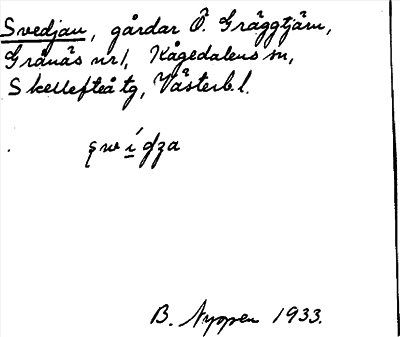 Svedjan, gårdar Ö. Gräggtjärn,
Grånäs nr 1, Kågedalens sn,
Skellefteå tg, Västerb. l.
B. Nyopen 1933.